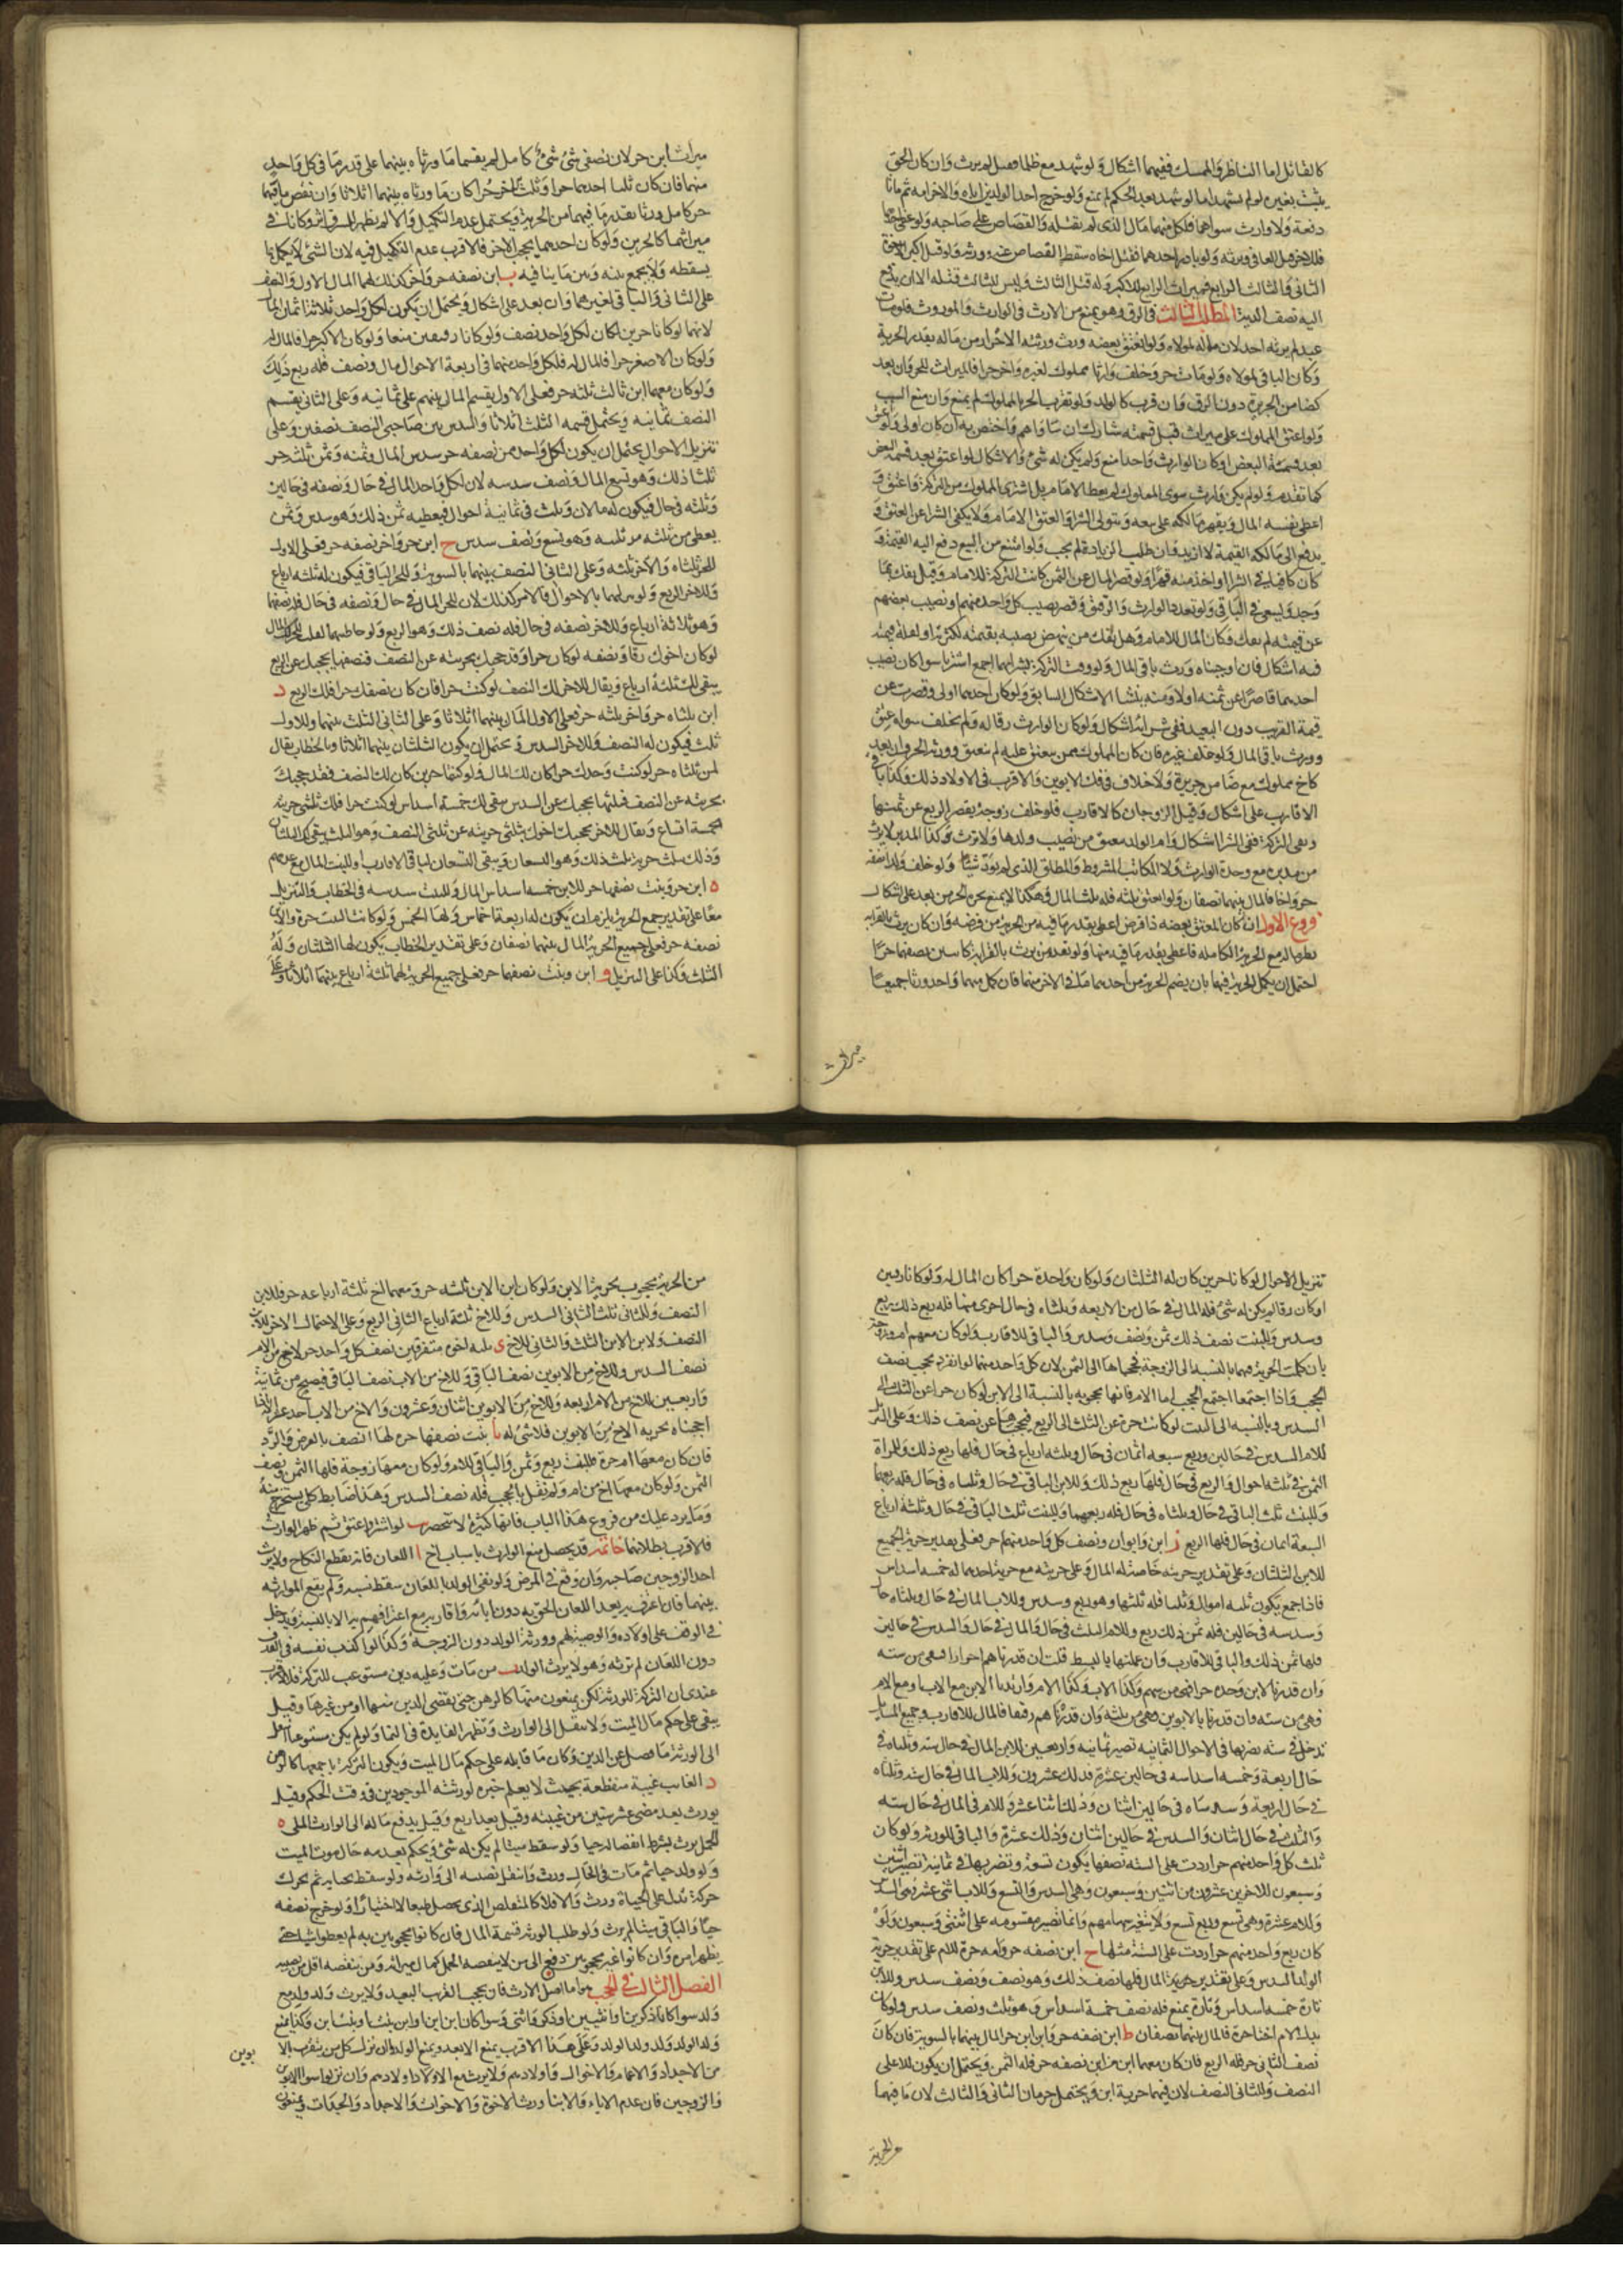 كالقاتل اما الناظر والممسك ففيهما اشكال ولو شهد مع ظلما فقتل لم يرث وان كان الحق
يثبت بغيره لو لم يشهد اما لو شهد بعد الحكم لم يمنع ولو جرح احد الولدين اباه والاخر امه ثم ماتا
دفعة ولا وارث سواهما فلكل منهما مال الذى لم يقتله والقصاص على صاحبه ولو عفى احدهما
فللاخر قتل العافى ويرثه ولو بادر احدهما فقتل اخاه سقط القصاص عنه وورثه ولو قتل اكبر الاخوة
الثانى والثالث الرابع فميراث الرابع للاكبر وله قتل الثالث وليس للثالث قتله الا ان يدفع
اليه نصف الدية المطلب الثالث فى الرق وهو يمنع من الارث فى الوارث والموروث فلو مات
عبد لم يرثه احد لان ماله لمولاه ولو انعتق بعضه ورث ورثته الاحرار من ماله بقدر الحرية
وكان الباقى لمولاه ولو مات حر وخلف وارثا مملوك لغيره واخر حرا فالميراث للحر وان بعد
كضامن الجريرة دون الرق وان قرب كالولد ولو تقرب الحر بالمملوك لم يمنع وان منع السبب
ولو اعتق المملوك على ميراث قبل قسمته شارك ان ساواهم واختص به ان كان اولى ولو اعتق
بعد قسمة البعض او كان الوارث واحدا منع ولم يكن له شئ والاشكال لو اعتق بعد قسمة البعض
كما تقدم ولو لم يكن وارث سوى المملوك لم يعط الامام بل اشترى المملوك من التركة واعتق و
اعطى بقية المال ويقهر مالكه على بيعه ويتولى الشراء والعتق الامام ولا يكفى الشراء عن العتق و
يدفع الى مالكه القيمة لا ازيد وان طلب الزيادة لم يجب ولو امتنع من البيع دفع اليه القيمة و
كان كافيا فى الشراء واخذ منه قهرا ولو قصر المال عن الثمن كانت التركة للامام وقيل يفك بما
وجد ويسعى فى الباقى ولو تعدد الوارث والرقيق وقصر نصيب كل واحد منهم او نصيب بعضهم
عن قيمته لم يفك وكان المال للامام وهل يفك من ينهض نصيبه بقيمته لكثرته او لقلة قيمته
فيه اشكال فان اوجبناه ورث باقى المال ولو وفت التركة بشرائهما اجمع اشتريا سواء كان نصيب
احدهما قاصرا عن ثمنه او لا ومنه ينشا الاشكال السابق ولو كان احدهما اولى وقصرت عن
قيمة القريب دون البعيد ففى شرائه اشكال ولو كان الوارث رقا له ولم يخلف سواه عتق
وورث باقى المال ولو خلف غيره فان كان المملوك ممن ينعتق عليه لم ينعتق وورثه الحر وان بعد
كاخ مملوك مع ضامن جريرة ولا خلاف فى فك الابوين والاقرب فى الاولاد ذلك وكذا باقى
الاقارب على اشكال وقيل الزوجان كالاقارب فلو خلف زوجة يقصر الربع عن ثمنها
وتفى التركة ففى الشراء اشكال وام الولد تعتق من نصيب ولدها ولا ترث وكذا المدبر لا يرث
من مدبره مع وحدة الوارث ولا المكاتب المشروط والمطلق الذى لم يؤد شيئا ولو خلف ولدا نصفه
حر واخا فالمال بينهما نصفان ولو انعتق ثلثه فله ثلث المال وهكذا لا يمنع بجزء الحر من بعد على اشكال
فروع الاول ان كان المعتق بعضه ذا فرض اعطى بقدر ما فيه من الحرية من فرضه وان كان يرث بالقرابة
نظر ماله مع الحرية الكاملة فاعطى بقدر ما فيه منها ولو تعدد من يرث بالقرابة كابنين نصفهما حر
احتمل ان يكمل الحرية فيهما بان يضم الحرية من احدهما ما فى الاخر منها فان كمل منهما واحد ورثا جميعا
ميراث
ميراث ابن حر لان نصفى شئ شئ كامل ثم يقسما ما ورثاه بينهما على قدر ما فى كل واحد
منهما فان كان ثلثا احدهما حرا وثلث الاخر حرا كان ما ورثاه بينهما اثلاثا وان نقص ما فيهما
حر كامل ورثا بقدر ما فيهما من الحرية ويحتمل عدم التكميل والا لم يظهر للرق اثر وكانا فى
ميراثهما كالحرين ولو كان احدهما يحجب الاخر فالاقرب عدم التكميل فيه لان الشئ لا يكمل بما
يسقطه ولا يجمع بينه وبين ما ينافيه ب ابن نصفه حر واخر كذلك لهما المال على الاول والنصف
على الثانى والباقى لغيرهما وان بعد على اشكال ويحتمل ان يكون لكل واحد ثلاثة اثمان المال
لانهما لو كانا حرين لكان لكل واحد نصف ولو كانا رقيقين منعا ولو كان الاكبر حرا فالمال له
ولو كان الاصغر حرا فالمال له فلكل واحد منهما فى اربعة الاحوال مال ونصف فله ربع ذلك
ولو كان معهما ابن ثالث ثلثه حر فعلى الاول يقسم المال بينهم على ثمانية وعلى الثانى يقسم
النصف بثمانية ويحتمل قسمة الثلث اثلاثا والسدس بين صاحبى النصف نصفين وعلى
تنزيل الاحوال يحتمل ان يكون لكل واحد ممن نصفه حر سدس المال وثمنه ولمن ثلثه حر
ثلثا ذلك وهو تسع المال ونصف سدسه لان لكل واحد المال فى حال ونصفه فى حالين
وثلثه فى حال فيكون له مالان وثلث فى ثمانية احوال فيعطيه ثمن ذلك وهو سدس وثمن
يعطى من ثلثه حر ثلثيه وهو تسع ونصف سدس ج ابن حر واخر نصفه حر فعلى الاول
للحر ثلثاه والاخر ثلثه وعلى الثانى النصف بينهما بالسوية وللحر الباقى فيكون له ثلثة ارباع
وللاخر الربع ولو نزلهما بالاحوال فالامر كذلك لان للحر المال فى حال ونصفه فى حال فله نصفهما
وهو ثلاثة ارباع وللاخر نصفه فى حال فله نصف ذلك وهو الربع ولو خاطبهما لقلت للحر لك المال
لو كان اخوك رقا ونصفه لو كان حرا وقد حجبك بحريته عن النصف فنصفها يحجبك عن الربع
يبقى لك ثلثة ارباع ويقال للاخر لك النصف لو كنت حرا فان كان نصفك حرا فلك الربع د
ابن ثلثاه حر واخر ثلثه حر فعلى الاول المال بينهما اثلاثا وعلى الثانى الثلث بينهما وللاول
ثلث فيكون له النصف وللاخر السدس ويحتمل ان يكون الثلثان بينهما اثلاثا وبالخطاب يقال
لمن ثلثاه حر لو كنت وحدك حرا كان لك المال ولو كنتما حرين كان لك النصف فقد حجبك
بحريته عن النصف فبثلثها يحجبك عن السدس يبقى لك خمسة اسداس لو كنت حرا فلك بثلثى حرية
خمسة اتساع ويقال للاخر يحجبك اخوك بثلثى حريته عن ثلثى النصف وهو الثلث يبقى لك الثلثان
ولك بثلث حرية ثلث ذلك وهو التسعان ويبقى التسعان لباقى الاقارب او لبيت المال مع عدمهم
ه ابن حر وبنت نصفها حر للابن خمسة اسداس المال وللبنت سدسه فى الخطاب والتنزيل
معا على تقدير جمع الحرية يلزم ان يكون له اربعة اخماس ولها الخمس ولو كانت البنت حرة والابن
نصفه حر فعلى جميع الحرية المال بينهما نصفان وعلى تقدير الخطاب يكون لها الثلثان وله
الثلث وكذا على التنزيل و ابن وبنت نصفهما حر فعلى جميع الحرية لهما ثلثة ارباع بينهما اثلاثا وعلى
تنزيل الاحوال لو كانا حرين كان له الثلثان ولو كان واحدة حرا كان المال له ولو كانا رقين
او كان رقا لم يكن له شئ فله المال فى حال من الاربعة وثلثاه فى حال اخرى منها فله ربع ذلك ربع
وسدس وللبنت نصف ذلك ثمن ونصف وسدس والباقى للاقارب ولو كان معهم ام وزوجة
بان كملت الحرية فيهما بالنسبة الى الزوجة فحجباها الى الثمن لان كل واحد منهما لو انفرد يحجب نصف
الحجب واذا اجتمعا اجتمع الحجب اما الام فانها محجوبة بالنسبة الى الابن لو كان حرا عن الثلث الى
السدس وبالنسبة الى البنت لو كانت حرة عن الثلث الى الربع فيحجبانها عن نصف ذلك وعلى التنزيل
للام السدس فى حالين وربع سبعة اثمان فى حال وثلثة ارباع فى حال فلها ربع ذلك وللمراة
الثمن فى ثلثة احوال والربع فى حال فلها ربع ذلك وللابن الباقى فى حال وثلثاه فى حال فله ربعهما
وللبنت ثلث الباقى فى حال وثلثاه فى حال فله ربعهما وللبنت ثلث الباقى فى حال وثلثة ارباع
السبعة اثمان فى حال فلها الربع ز ابن وابوان ونصف كل واحد منهم حر فعلى تقدير حرية الجميع
للابن الثلثان وعلى تقدير حريته خاصة له المال وعلى حريته مع حرية احدهما له خمسة اسداس
فاذا جمع يكون ثلثة اموال وثلثا فله ثلثها وهو ربع وسدس وللاب المال فى حال وثلثاه حال
وسدسه فى حالين فله ثمن ذلك ربع وللام الثلث فى حال والمال فى حال والسدس فى حالين
فلها ثمن ذلك والباقى للاقارب وان عملتها بالبسط قلت ان قدرناهم احرارا فهى من ستة
وان قدرنا الابن وحده حرا فهى من سهم وكذا الاب وكذا الام وان قدرنا الابن مع الاب او مع الام
فهى من ستة وان قدرنا بالابوين فهى من ثلثة وان قدرناهم رقيقا فالمال للاقارب وجميع المسائل
تدخل فى ستة نضربها فى الاحوال الثمانية تصير ثمانية واربعين للابن المال فى حال ستة وثلثاه فى
حال اربعة وخمسة اسداسه فى حالين عشرة فذلك عشرون وللاب المال فى حال ستة وثلثاه
فى حال اربعة وسدساه فى حالين اثنان وذلك اثنا عشر وللام فى المال فى حال ستة
والثلث فى حال اثنان والسدس فى حالين اثنان وذلك عشرة والباقى للورثة ولو كان
ثلث كل واحد منهم حرا زدت على الستة نصفها يكون تسعة ونضربها فى ثمانية تصير اثنين
وسبعون للاخرين عشرون من اثنتين وسبعون وهى السدس والتسع وللاب اثنى عشر وهى السدس
وللام عشرة وهى تسع وربع تسع ولا يتغير سهامهم وانما تصير مقسومة على اثنتى وسبعون ولو
كان ربع واحد منهم حرا زدت على الستة مثلها ح ابن نصفه حر وامه حرة للام على تقدير حرية
الولد السدس وعلى تقدير حرية المال فلها نصف ذلك وهو نصف ونصف سدس وللابن
تارة خمسة اسداس وتارة يمنع فله نصف خمسة اسداس وهو ثلث ونصف سدس ولو كان
بدل الام اختا حرة فالمال بينهما نصفان ط ابن نصفه حر وابن ابن حر المال بينهما بالسوية فان كان
نصف الثانى حر فله الربع فان كان معهما ابن ابن ابن نصفه حر فله الثمن ويحتمل ان يكون للاعلى
النصف وللثانى النصف لان فيهما حرية ابن ويحتمل حرمان الثانى والثالث لان ما فيهما
من الحرية
من الحرية محجوب بحرية الابن ولو كان ابن الابن ثلثه حر ومعهما اخ ثلثة ارباعه حر فللابن
النصف وللثانى ثلث الثانى السدس وللاخ ثلثة ارباع الثانى الربع وعلى الاحتمال الاخر للابن
النصف ولابن الابن الثلث والثانى للاخ ى ثلثة اخوة متفرقين نصف كل واحد حر للاخ من الام
نصف السدس وللاخ من الابوين نصف الباقى وللاخ من الاب نصف الباقى فيصح من ثمانية
واربعين للاخ من الام اربعة وللاخ من الابوين اثنان وعشرون والاخ من الاب احد عشر اذا
احجبناه بحرية الاخ من الابوين فلا شئ له يا بنت نصفها حرة لها النصف بالفرض والرد
فان كان معها ام حرة فللبنت ربع وثمن والباقى للام ولو كان معها زوجة فلها الثمن ونصف
الثمن ولو كان معها اخ من ام ولم نقل بانه يحجب فله نصف السدس وهذا ضابط كلى يستخرج منه
وما يرد عليك من فروع هذا الباب فانها كثيرة لا تنحصر يب لو اشترى واعتق ثم ظهر الوارث
فالاقرب بطلانهما خاتمة قد يحصل منع الوارث باسباب اخر ا اللعان فانه يقطع النكاح ولا يرث
احد الزوجين صاحبه وان وقع فى المرض ولو نفى الولد باللعان سقط نسبه ولم يقع الموارثة
بينهما فان اعترف به بعد اللعان الحق به دون ابائه واقاربه مع اعترافهم به الا بالنسبة ويدخل
فى الوقف على اولاده والوصية لهم وورثه الولد دون الزوجة وكذا لو اكذب نفسه فى القذف
دون اللعان لم ترثه وهو لا يرث الولد ب من مات وعليه دين مستوعب للتركة فالاقرب
عندى ان التركة للورثة لكن يمنعون منها كالرهن حتى يقضى الدين منها او من غيرها وقيل
يبقى على حكم مال الميت ولا ينتقل الى الوارث وتظهر الفايدة فى النماء ولو لم يكن مستوعبا انتقل
الى الورثة ما فضل عن الدين وكان ما قابله على حكم مال الميت ويكون التركة باجمعها كالرهن
د الغائب غيبة منقطعة بحيث لا يعلم خبره لورثته الموجودين فى وقت الحكم وقيل
يورث بعد مضى عشر سنين من غيبته وقيل بعد اربع وقيل يدفع ماله الى الوارث الملى ه
الحمل يرث بشرط انفصاله حيا ولو سقط ميتا لم يكن له شئ ويحكم بعدمه حال موت الميت
ولو ولد حيا ثم مات فى الحال ورث وانتقل نصيبه الى وارثه ولو سقط بجناية ثم تحرك
حركة تدل على الحياة ورث والا فلا كالتقلص الذى يحصل طبعا لا اختيارا ولو خرج نصفه
حيا والباقى ميتا لم يرث ولو طلب الورثة قسمة المال فان كانوا محجوبين به لم يعطوا شيئا حتى
يظهر امره وان كانوا غير محجوبين دفع الى من لا ينقصه الحمل كمال ميراثه ومن ينقصه اقل من نصيبه
الفصل الثالث فى الحجب هو اما اصل الارث فان يحجب القريب البعيد ولا يرث ولد ولد مع
ولد سواء كانا ذكرين او انثيين او ذكر وانثى وسواء كانا ابن ابن او ابن بنت او بنت ابن وكذا يمنع
ولد الولد ولد ولد الولد وعلى هذا الاقرب يمنع الابعد ويمنع الولد وان نزل كل من يتقرب بالا
بوين
من الاجداد والاعمام والاخوال واولادهم ولا يرث مع الاولاد اولادهم وان نزلوا سوى الابوين
والزوجين فان عدم الاباء والابناء ورث الاخوة والاخوات والاجداد والجدات ويمنعون